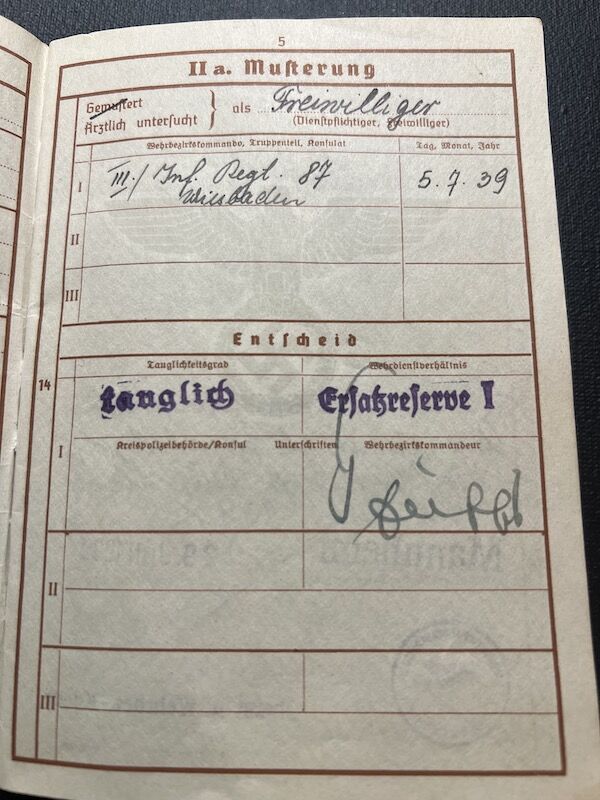 5
II a. Musterung
Gemustert
Ärztlich untersucht } als Freiwilliger
(Dienstpflichtiger, Freiwilliger)
Wehrbezirkskommando, Truppenteil, Konsulat Tag, Monat, Jahr
I III./ Inf. Regt. 87 5. 7. 39
Wiesbaden
II
III
Entscheid
Tauglichkeitsgrad Wehrdienstverhältnis
14
tauglich Ersatzreserve I
Kreispolizeibehörde/Konsul Unterschriften Wehrbezirkskommandeur
I
II
III